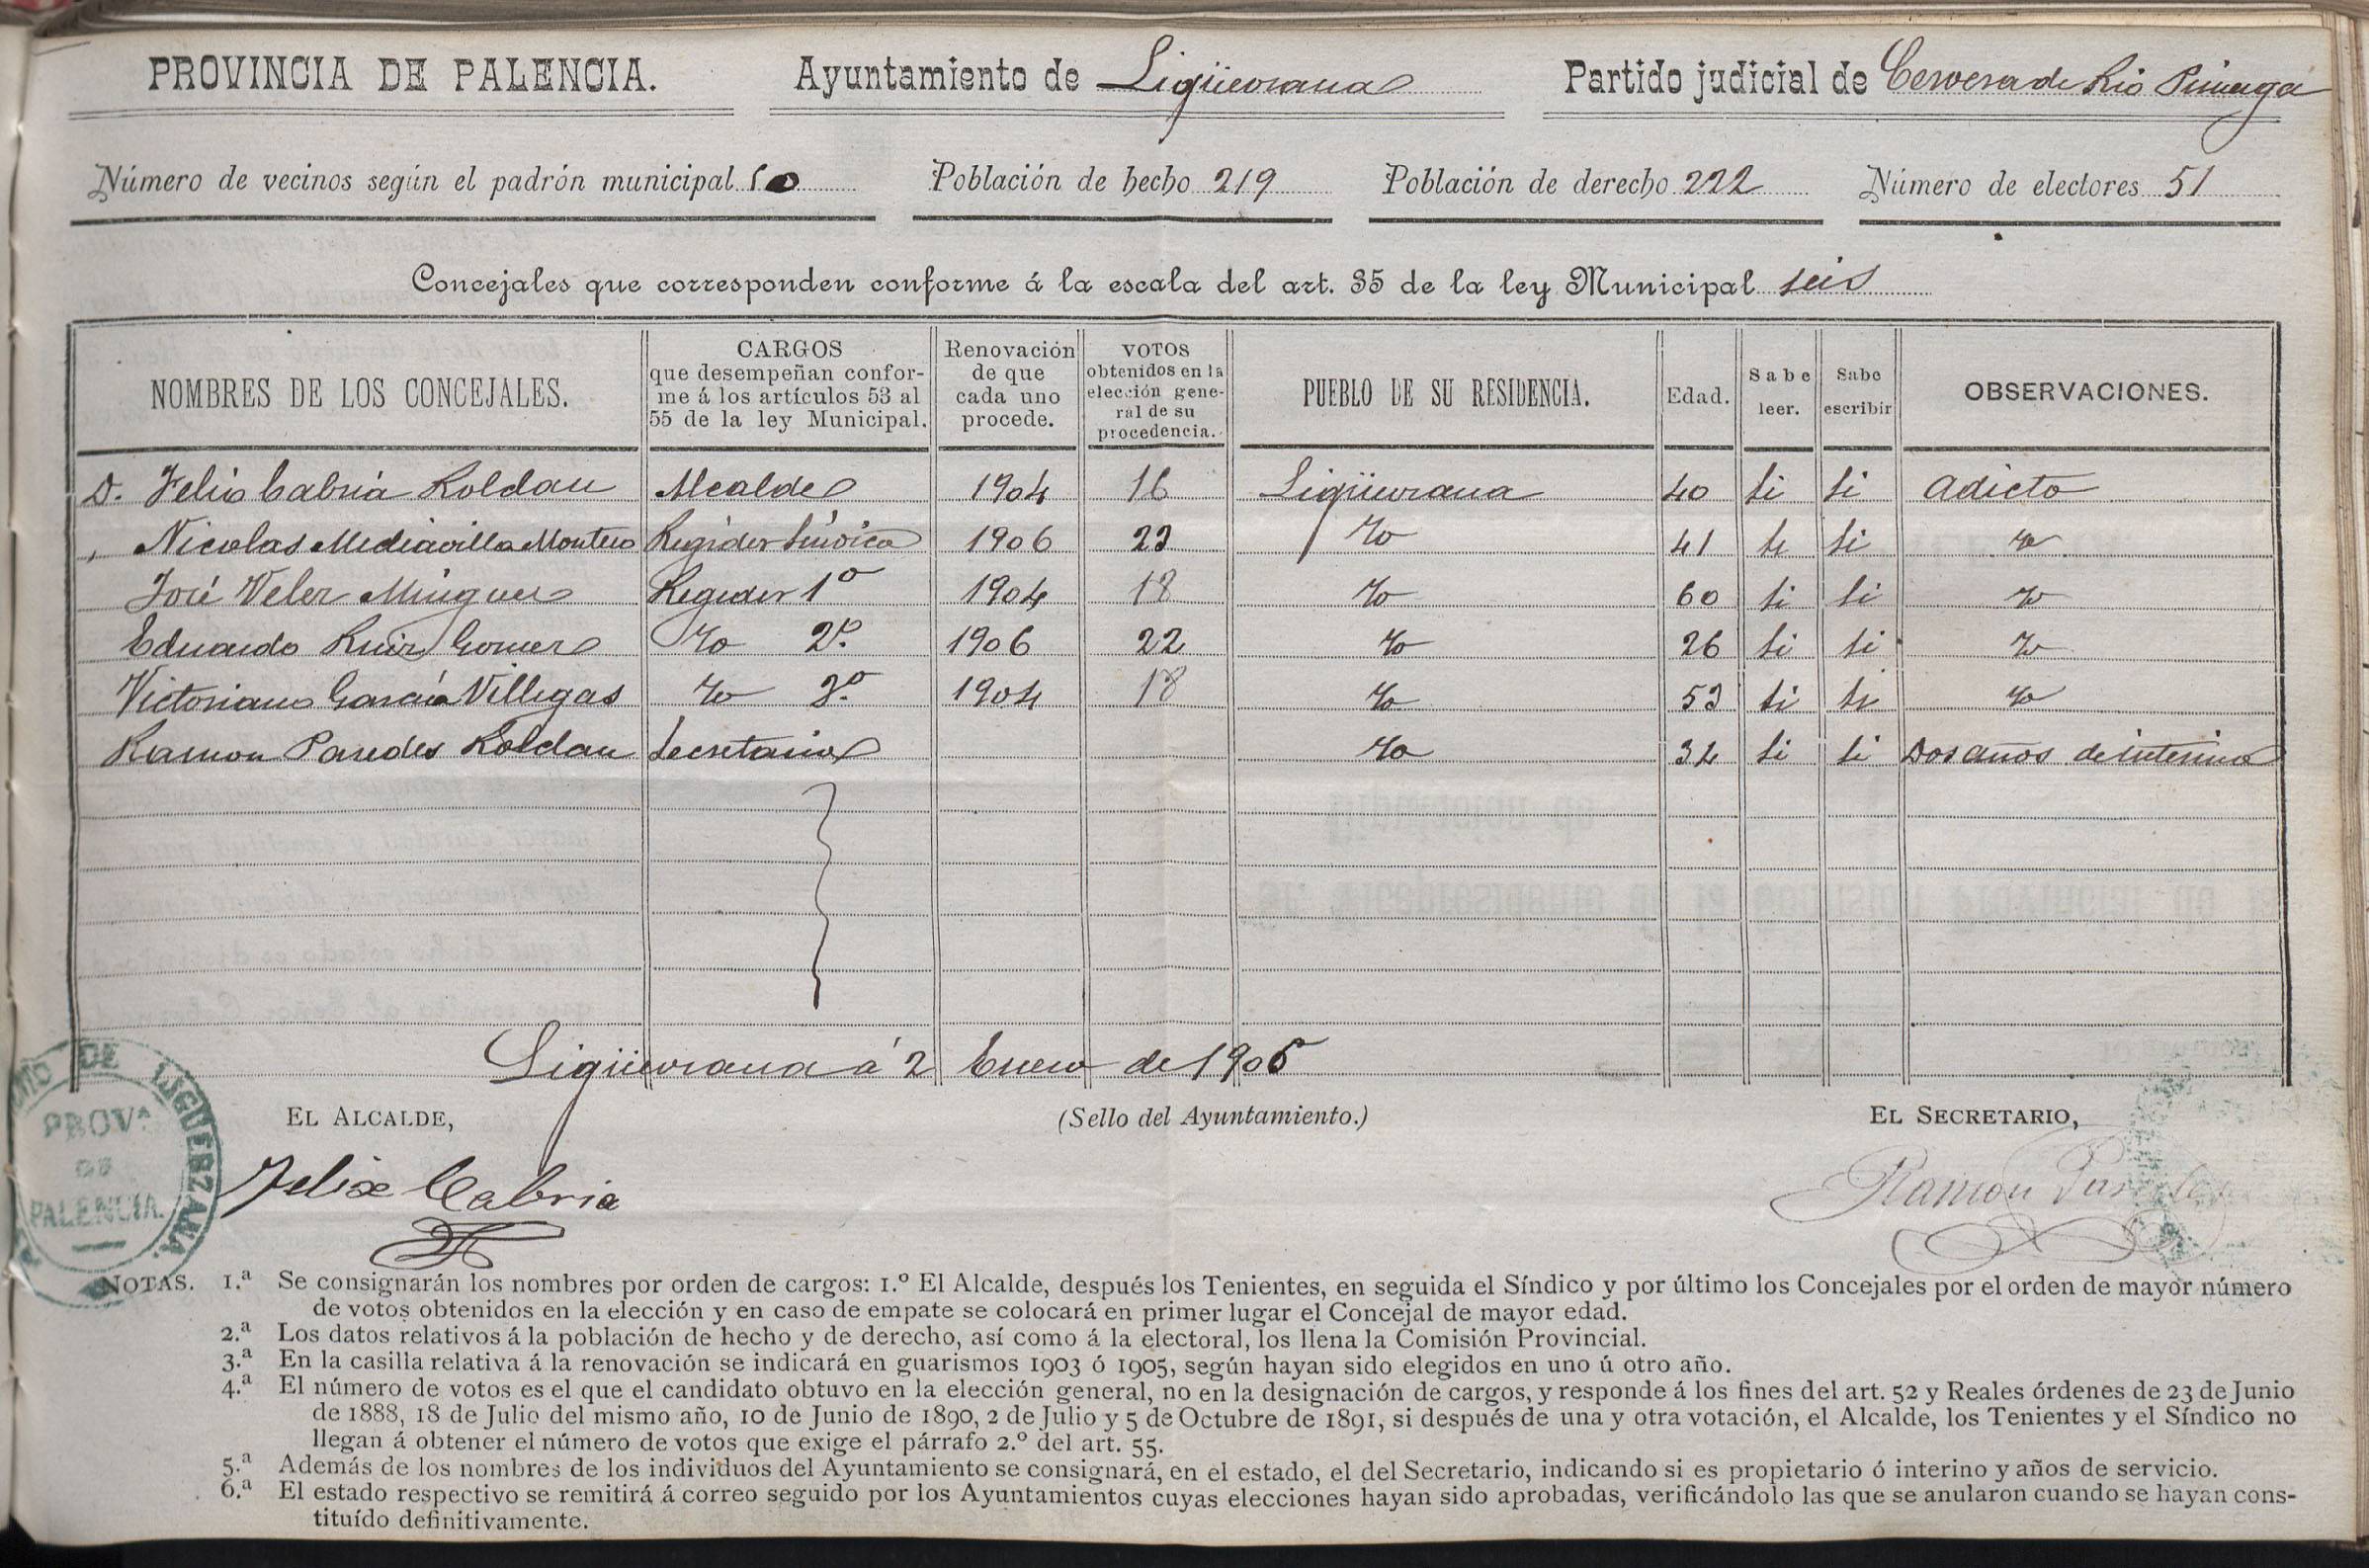 PROVINCIA DE PALENCIA. Ayuntamiento de Ligüerzana Partido judicial de Cervera de Rio Pisuerga
Número de vecinos según el padrón municipal 50 Población de hecho 219 Población de derecho 222 Número de electores 51
Concejales que corresponden conforme á la escala del art. 35 de la ley Municipal seis
NOMBRES DE LOS CONCEJALES. CARGOS que desempeñan confor- me á los artículos 53 al 55 de la ley Municipal. Renovación de que cada uno procede. VOTOS obtenidos en la elección gene- ral de su procedencia. PUEBLO DE SU RESIDENCIA. Edad. Sabe leer. Sabe escribir OBSERVACIONES.
D. Felix Cabria Roldan Alcalde 1904 16 Ligüerzana 40 Si Si Adicto
Nicolas Mediavilla Montero Regidor Síndico 1906 23 Yo 41 Si Si Yo
José Velez Minguez Regidor 1º 1904 18 Yo 60 Si Si Yo
Eduardo Ruiz Gomez Yo 2º. 1906 22 Yo 26 Si Si Yo
Victoriano García Villegas Yo 3º. 1904 18 Yo 53 Si Si Yo
Ramon Paredes Roldan Secretario Yo 34 Si Si Dos años de interino
Ligüerzana á 2 Enero de 1906
EL ALCALDE, (Sello del Ayuntamiento.) EL SECRETARIO,
Felix Cabria Ramon Paredes
DE LIGUERZANA
PROVA
DE
PALENCIA.
NOTAS. 1.ª Se consignarán los nombres por orden de cargos: 1.º El Alcalde, después los Tenientes, en seguida el Síndico y por último los Concejales por el orden de mayor número
de votos obtenidos en la elección y en caso de empate se colocará en primer lugar el Concejal de mayor edad.
2.ª Los datos relativos á la población de hecho y de derecho, así como á la electoral, los llena la Comisión Provincial.
3.ª En la casilla relativa á la renovación se indicará en guarismos 1903 ó 1905, según hayan sido elegidos en uno ú otro año.
4.ª El número de votos es el que el candidato obtuvo en la elección general, no en la designación de cargos, y responde á los fines del art. 52 y Reales órdenes de 23 de Junio
de 1888, 18 de Julio del mismo año, 10 de Junio de 1890, 2 de Julio y 5 de Octubre de 1891, si después de una y otra votación, el Alcalde, los Tenientes y el Síndico no
llegan á obtener el número de votos que exige el párrafo 2.º del art. 55.
5.ª Además de los nombres de los individuos del Ayuntamiento se consignará, en el estado, el del Secretario, indicando si es propietario ó interino y años de servicio.
6.ª El estado respectivo se remitirá á correo seguido por los Ayuntamientos cuyas elecciones hayan sido aprobadas, verificándolo las que se anularon cuando se hayan cons-
tituído definitivamente.